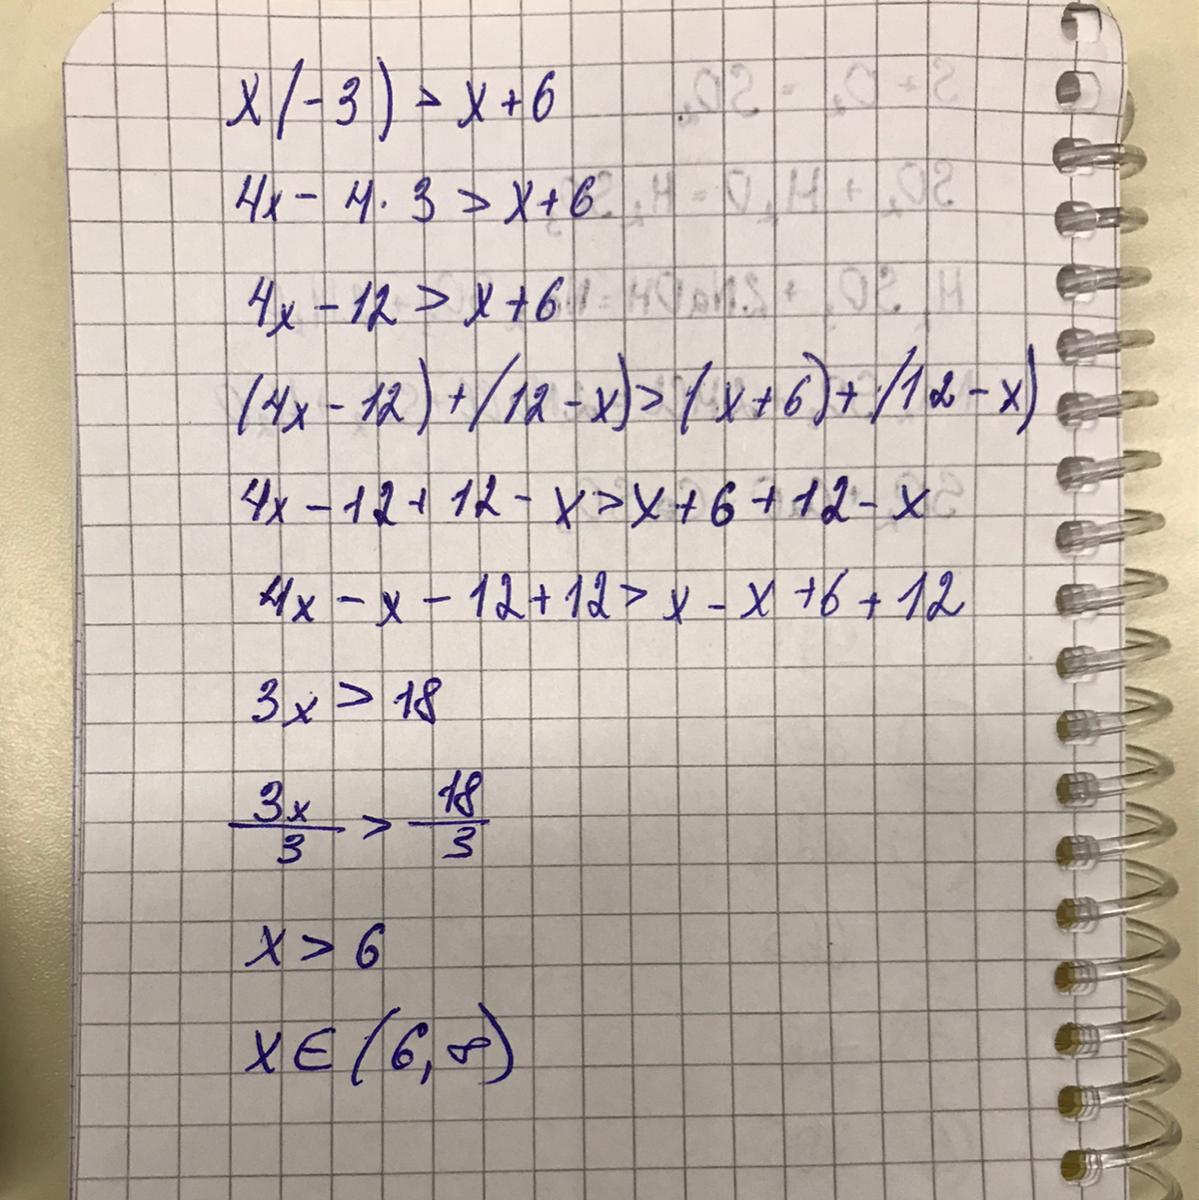 x(-3) > x+6
4x - 4·3 > x+6
4x - 12 > x+6
(4x - 12) + (12 - x) > (x+6) + (12 - x)
4x - 12 + 12 - x > x + 6 + 12 - x
4x - x - 12 + 12 > x - x + 6 + 12
3x > 18
3x/3 > 18/3
x > 6
x ∈ (6, ∞)